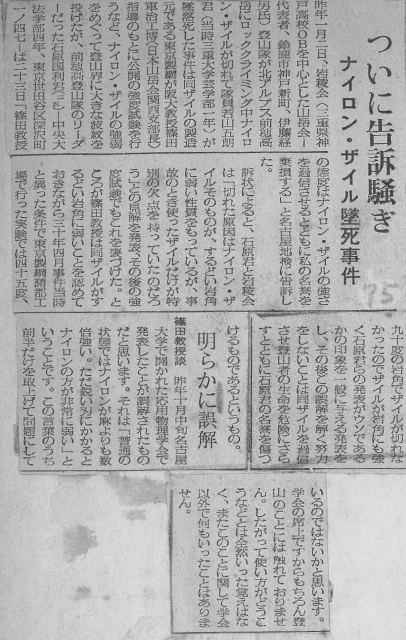 ついに告訴騒ぎ
ナイロン・ザイル墜死事件
昨年一月二日、岩稜会（三重県神
戸高校OBを中心とした山岳会＝
代表者、鈴鹿市神戸新町、伊藤経
男氏）登山隊が北アルプス前穂高
岳にロッククライミング中ナイロ
ン・ザイルが切れて隊員若山五朗
君（当時三重大学芸学部一年）が
墜落死した事件は同ザイルの製造
元である東京製綱が阪大教授篠田
軍治工博（日本山岳会関西支部長）
指導のもとに公開の強度試験を行
うなど、ナイロン・ザイルの強弱
をめぐって登山界に大きな波紋を
投げたが、前穂高登山隊のリーダ
ーだった石原国利君＝中央大
法学部四年、東京世田谷区深沢町
一ノ四七＝は二十三日「篠田教授
の態度はナイロン・ザイルの強さ
を過信させるとともに私の名誉を
棄損する」と名古屋地検に告訴し
た。
訴状によると、石原君と岩稜会
は「切れた原因はナイロン・ザ
イルそのものが、するどい岩角
に弱い性質をもっているが、事
故のとき使ったザイルだけが特
別の欠点を持っていたのだろ
う」との見解を発表、その後の強
度試験でもこれを裏づけた。と
ころが篠田教授は同ザイルがす
るどい岩角に弱いことを認めて
おきながら三十年四月事件当時
と異った条件で東京製綱蒲郡工
場で行った実験では四十五度、
九十度の岩角でザイルが切れな
かったのでザイルが岩角にも強
く石原君らの発表がウソである
かの印象を一般に与える発表を
し、その後この誤解を解く努力
をしないことは同ザイルを過信
させ登山者の生命を危険にさら
すとともに石原君の名誉を傷つ
けるものであるというもの。
明らかに誤解
篠田教授談　昨年十月中旬名古屋
大学で開かれた応用物理学会で
発表したことが誤解されたもの
だと思います。それは「普通の
状態ではナイロンが麻よりも数
倍強い。ただ鋭い刃にかかると
ナイロンの方が非常に弱い」と
いうことです。この言葉のうち
前半だけを取上げて問題にして
いるのではないかと思います。
学会の席上ですからもちろん登
山のことには触れておりませ
ん。したがって使い方がどうこ
うなどとは全然いった覚えはな
く、またこのことに関して学会
以外で何もいったことはありま
せん。